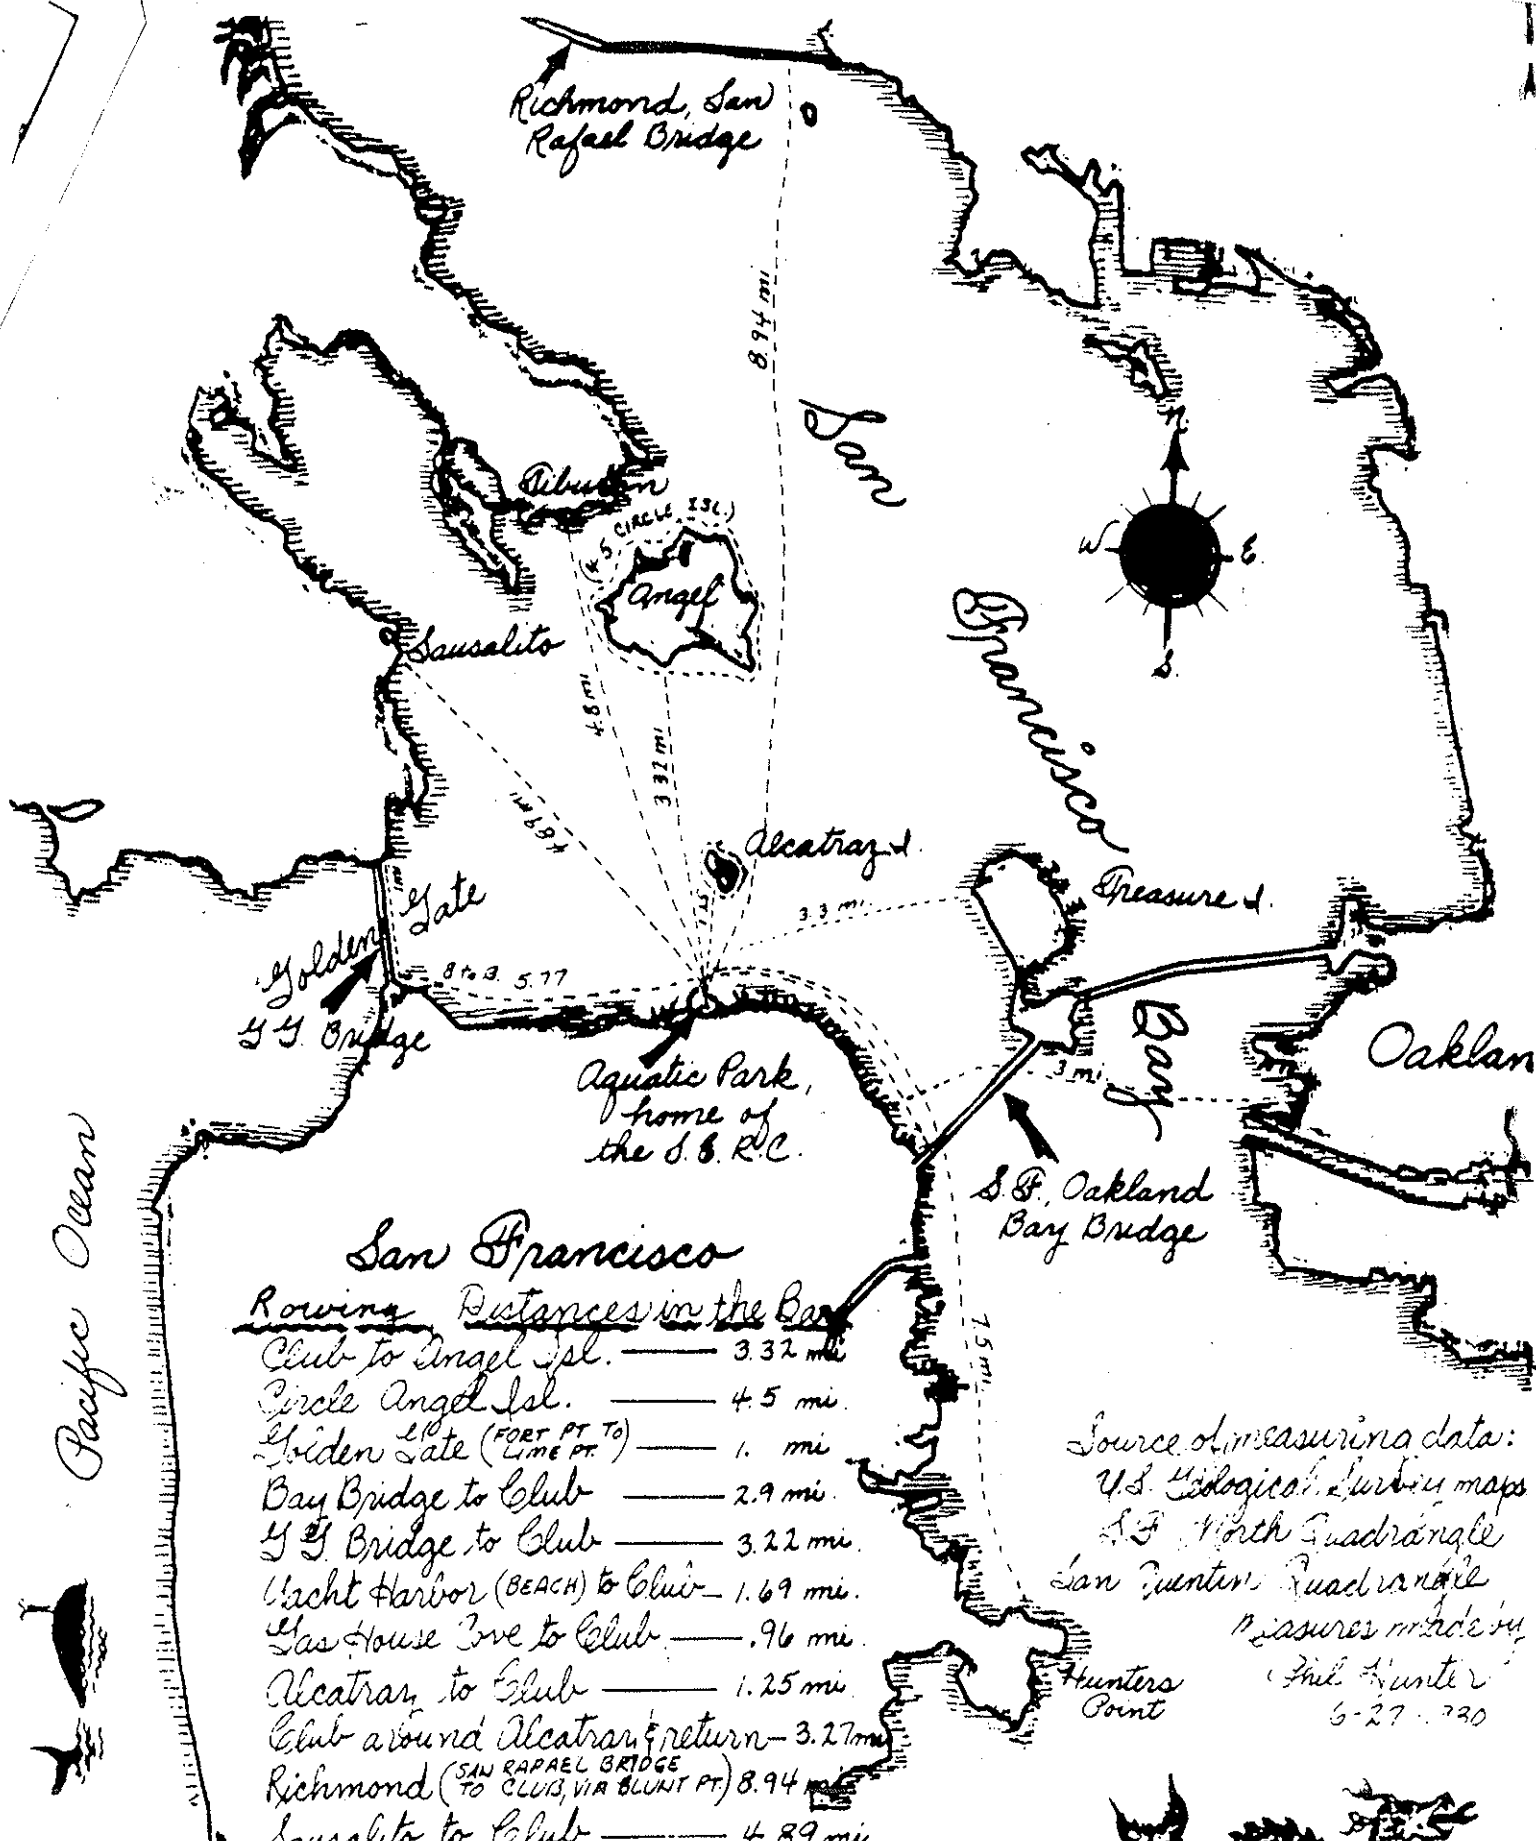 Richmond, San
Rafael Bridge
8.94 mi
San
Francisco
Bay
N.
W
E.
S.
Tiburon
CIRCLE ISL.)
Angel
Sausalito
4.8 mi
3.32 mi
4.89 mi
Alcatraz I.
Treasure I.
3.3 mi.
1 mi
Golden
Gate
G G. Bridge
B to B. 5.77
Aquatic Park,
home of
the S. E. R.C.
3 mi
Oaklan
S. F., Oakland
Bay Bridge
7.5 mi
Pacific Ocean
San Francisco
Rowing Distances in the Bay
Club to Angel Isl. 3.32 mi
Circle Angel Isl. 4.5 mi.
Golden Gate (FORT PT TO LIME PT.) 1. mi
Bay Bridge to Club 2.9 mi.
G G. Bridge to Club 3.22 mi.
Yacht Harbor (BEACH) to Club 1.69 mi.
Gas House Cove to Club .96 mi.
Alcatraz to Club 1.25 mi.
Club around Alcatraz & return 3.27 mi
Richmond (SAN RAPAEL BRIDGE TO CLUB, VIA BLUNT PT.) 8.94 mi
Sausalito to Club 4.89 mi
Source of measuring data:
U.S. Geological Survey maps
S.F. North Quadrangle
San Quentin Quadrangle
Measures made by
Phil Hunter
6-27
Hunters
Point